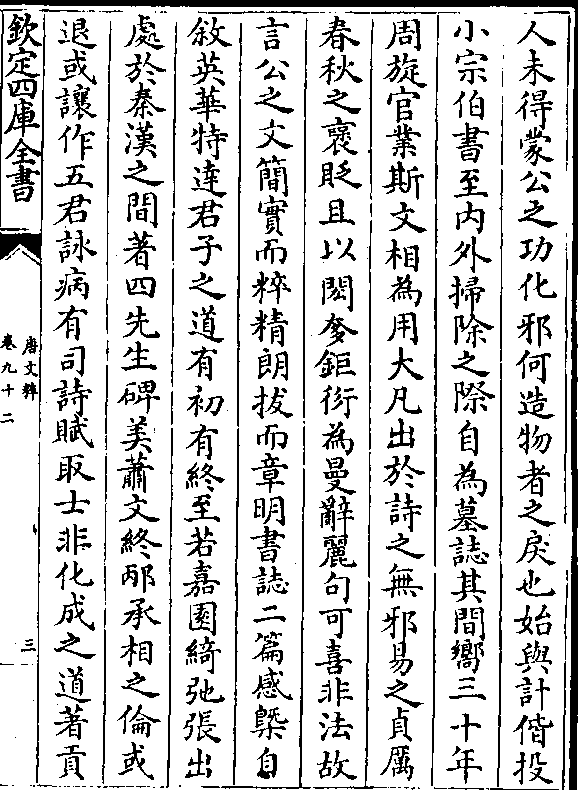 人未得蒙公之功化邪何造物者之戾也始與計偕投
小宗伯書至内外掃除之際自為墓誌其間嚮三十年
周旋官業斯文相為用大凡出於詩之無邪易之貞厲
春秋之襃貶且以閎麥鉅衍為曼辭麗句可喜非法故
言公之文簡實而粹精朗拔而章明書誌二篇感槩自
敘英華特達君子之道有初有終至若嘉園綺弛張出
處於秦漢之間著四先生碑美蕭文終邴丞相之倫或
退或讓作五君詠病有司詩賦取士非化成之道著貢
欽定四庫全書
唐文粹
卷九十二
三